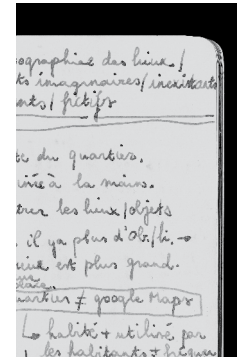 ographie des lieux /
ts imaginaires / inexistants
ants / fictifs
te du quartier.
à la mains.
trer les lieux / objets
il ya plus d'Ob. / li. →
est plus grand.
place.
uartier ≠ google Maps
↳ habité + utilisé par
les habitants ≠